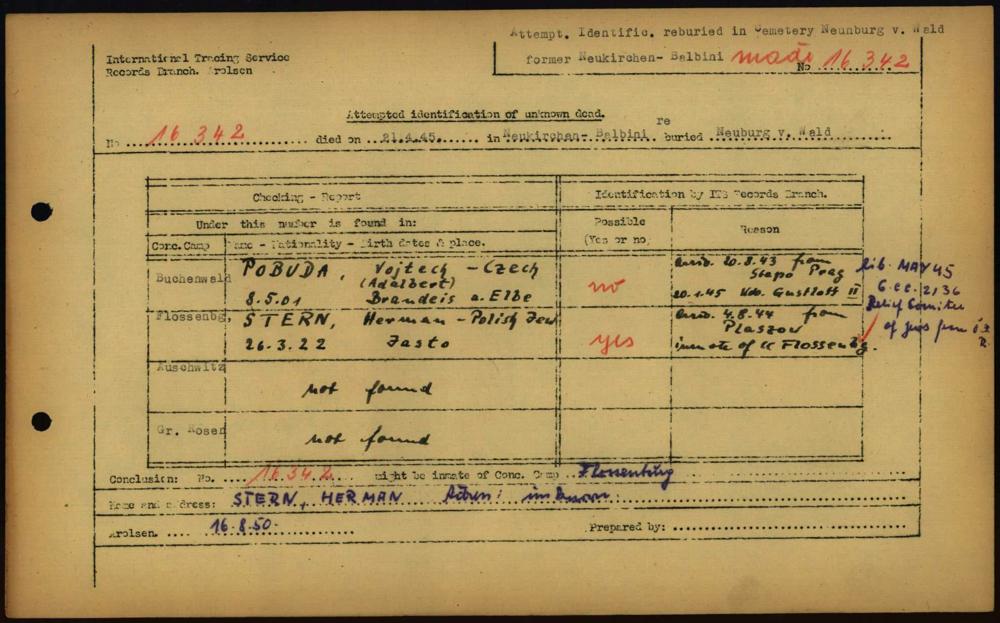 Attempt. Identific. reburied in Cemetery Neunburg v. Wald
former Neukirchen- Balbini
No 16 342
International Tracing Service
Records Branch. Arolsen
Attempted identification of unknown dead.
No 16 342 died on 21.4.45. in Neukirchen- Balbini re buried Neuburg v. Wald
Checking - Report
Identification by ITS Records Branch.
Under this number is found in:
Possible
(Yes or no)
Reason
Conc.Camp Name - Nationality - Birth dates & place.
Buchenwald POBUDA, Vojtech - Czech
(Adalbert)
8.5.01 Brandeis a. Elbe
no
arrid. 20.8.43 from
Stapo Prag
20.1.45 Kdo. Gustloff II
lib. MAY 45
G.C.C. 2/36
Relief Comitee
of jews from
Flossenbg. STERN, Herman - Polish Jew
26.3.22 Jasto
yes
arrid. 4.8.44 from
Plaszow
inmate of CC Flossenbg.
Auschwitz
not found
Gr. Rosen
not found
Conclusion: No. 16.342 might be inmate of Conc. Camp Flossenbürg
Name and address: STERN, HERMAN
Arolsen. 16.8.50. Prepared by: